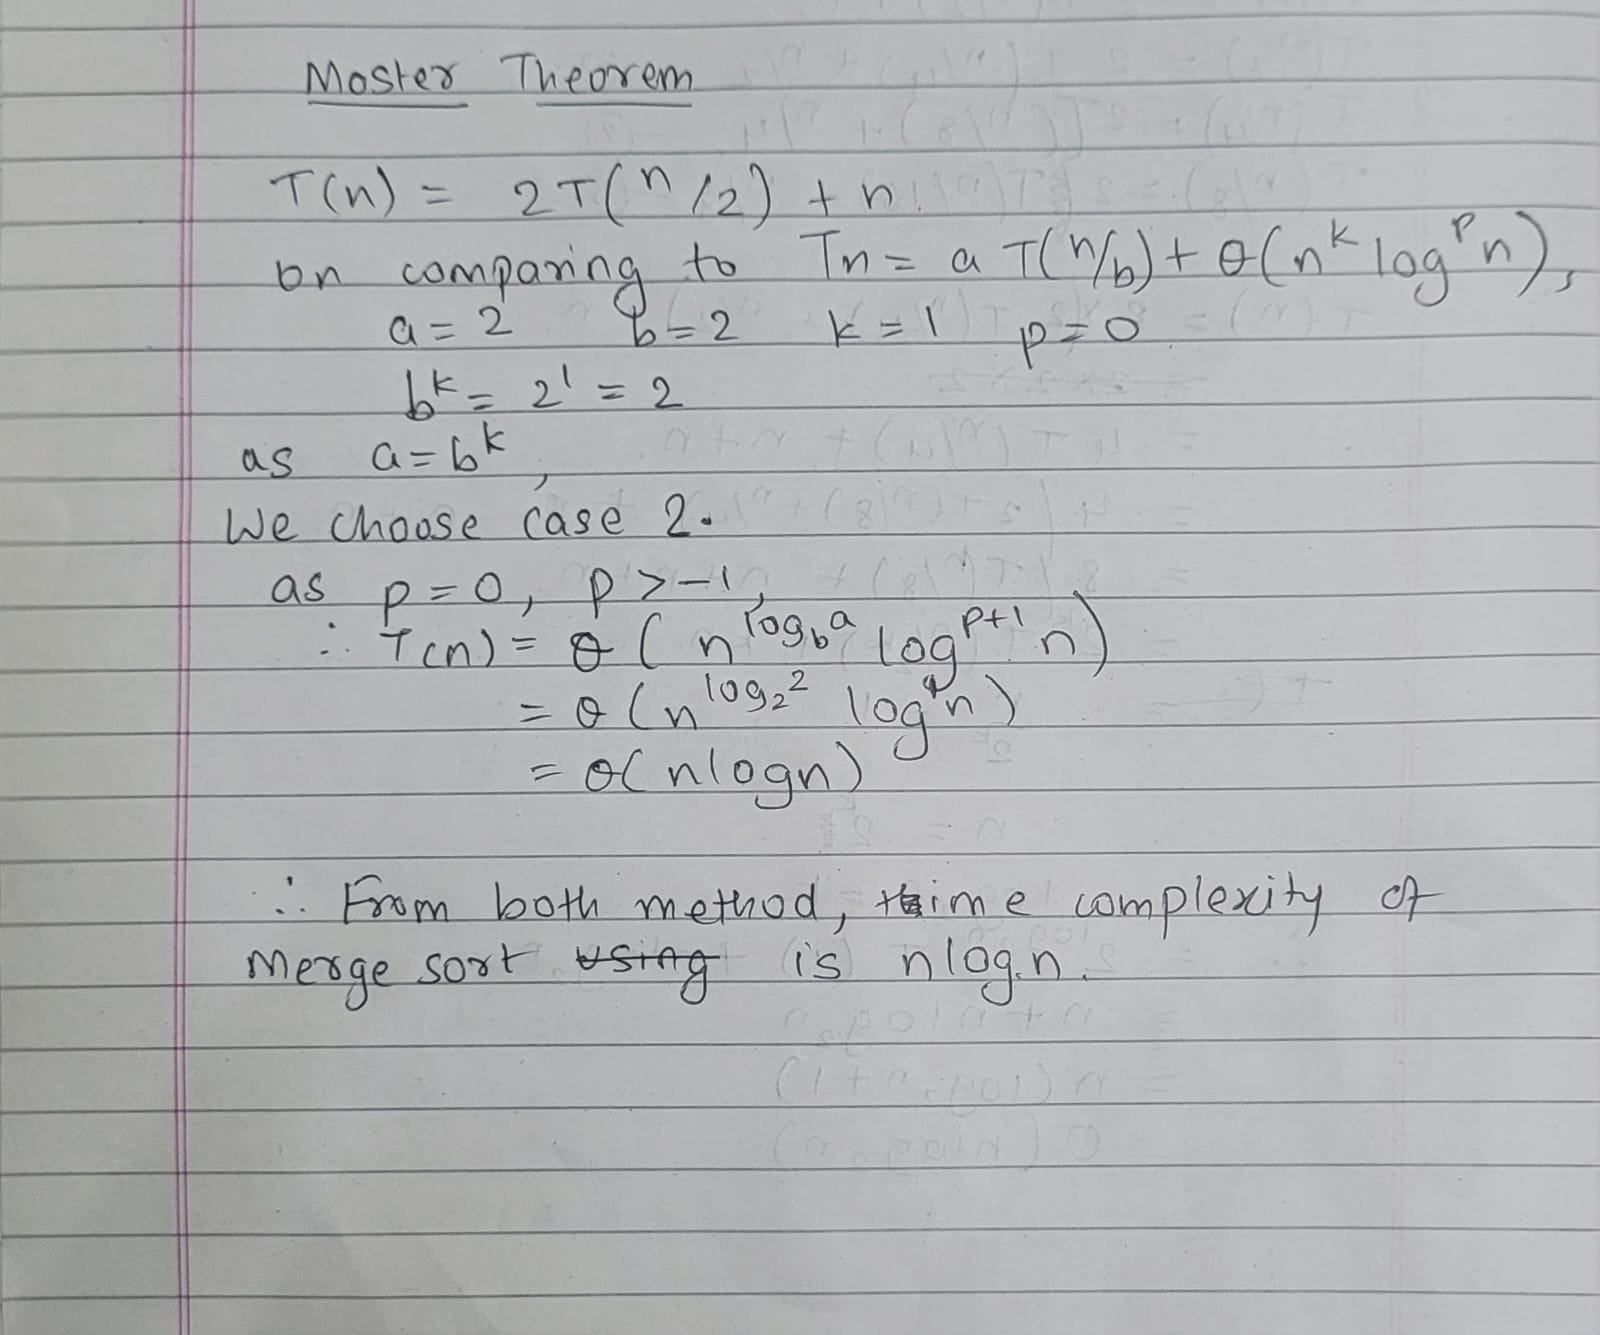 Master Theorem
T(n) = 2T(n/2) + n
on comparing to Tn = a T(n/b) + θ(n^k log^p n),
a = 2 b = 2 k = 1 p = 0
b^k = 2^1 = 2
as a = b^k,
We choose case 2.
as p = 0, p > -1,
∴ T(n) = θ (n^log_b a log^p+1 n)
= θ (n^log_2 2 log n)
= θ(nlogn)
∴ From both method, time complexity of
Merge sort using is nlogn.